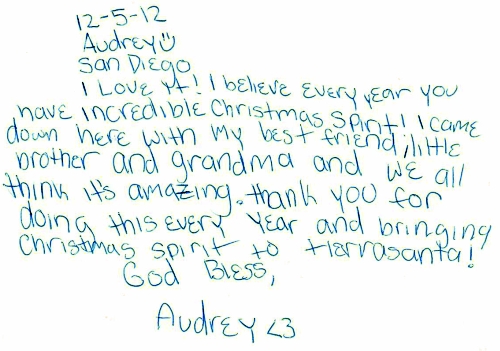 12-5-12
Audrey☺
San Diego
I Love it! I believe every year you
have incredible Christmas Spirit! I came
down here with my best friend, little
brother and grandma and we all
think it's amazing. thank you for
doing this every year and bringing
Christmas spirit to tierrasanta!
God Bless,
Audrey <3